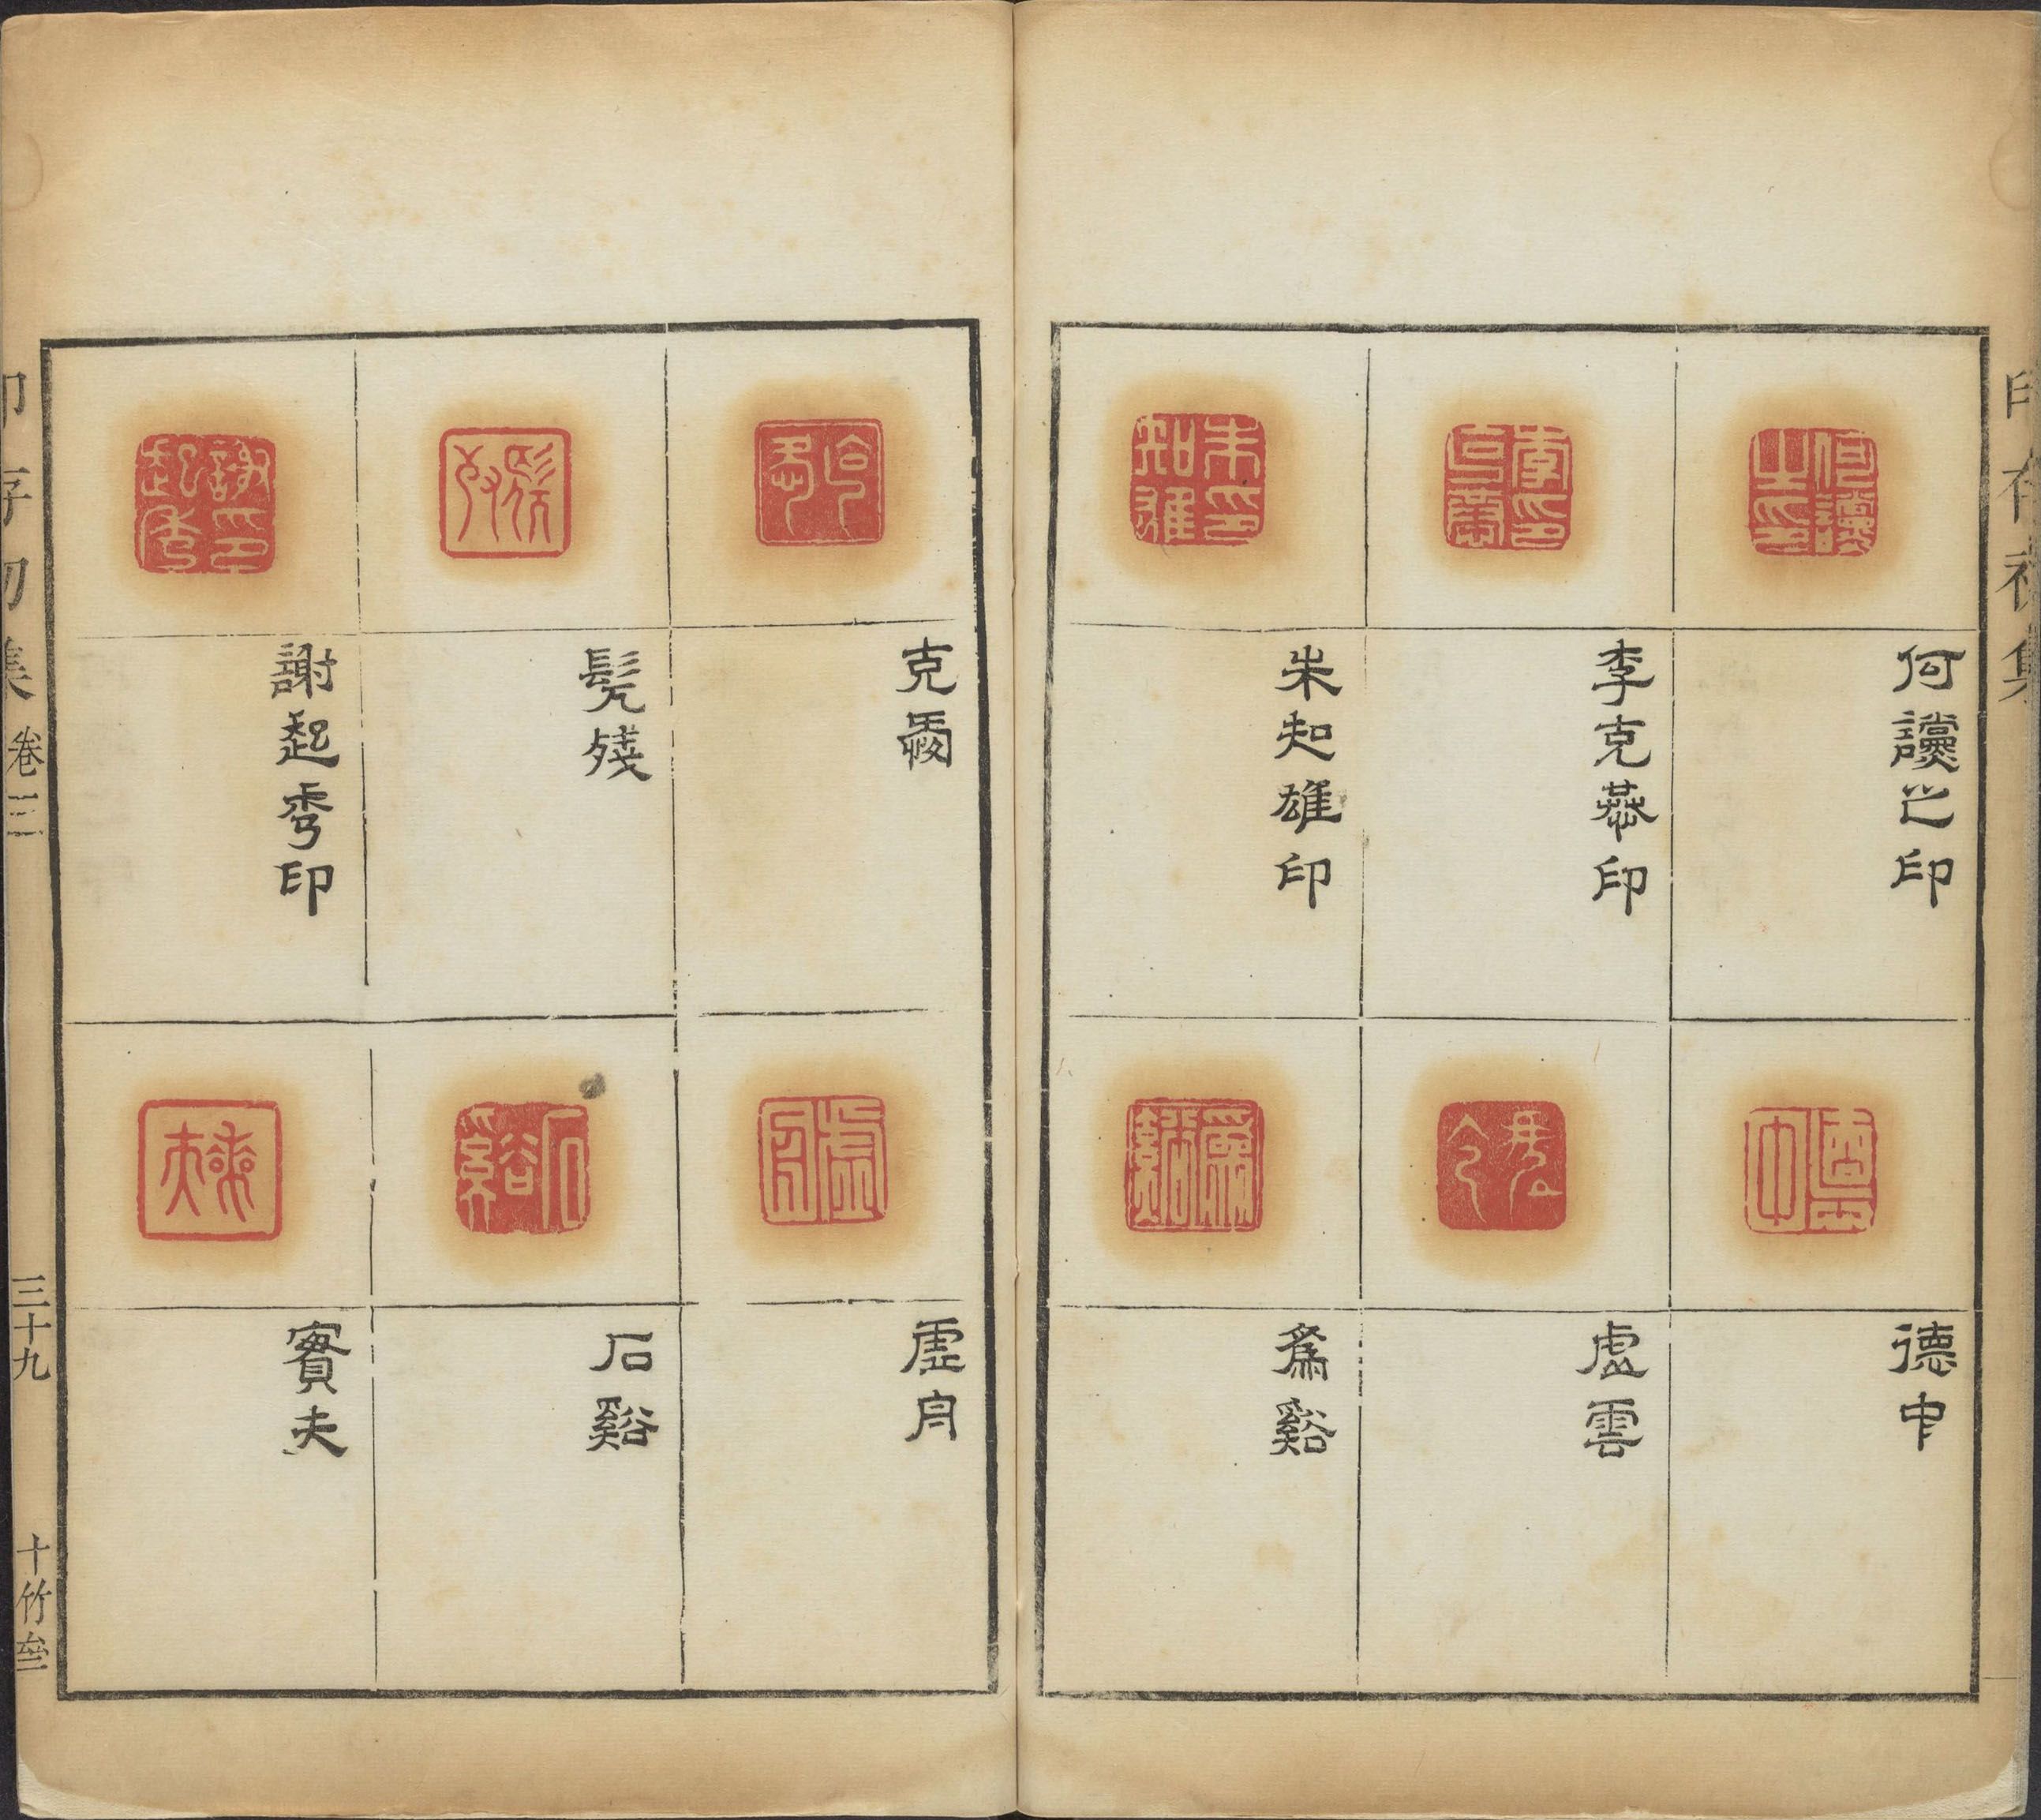 何讜之印
李克恭印
朱知雄印
德中
虛雲
爲谿
克
髡殘
謝起秀印
虛舟
石谿
賓夫
印存初集
卷三
三十九
十竹
印存初集